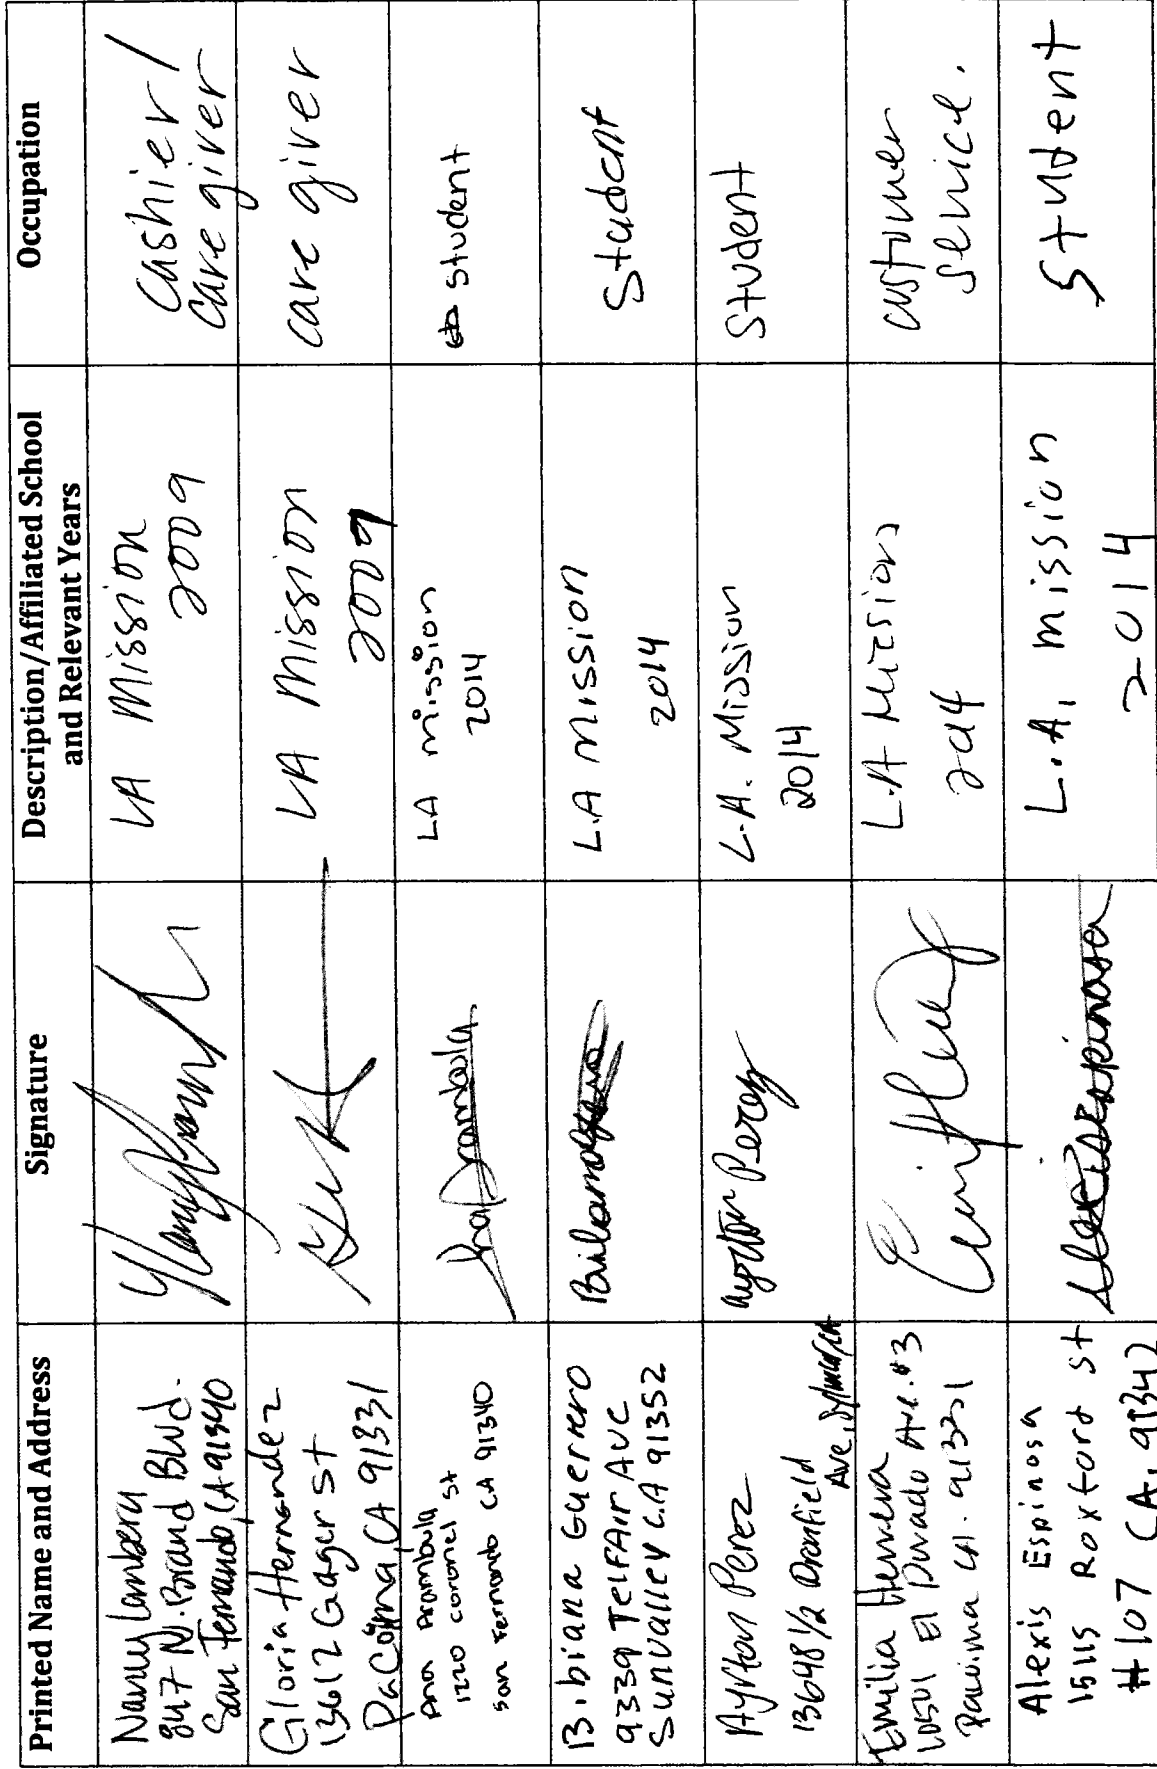 Printed Name and Address
Signature
Description/Affiliated School
and Relevant Years
Occupation
847 N. Brand Blvd.
San Fernando, CA 91340
LA Mission
2009
Cashier/
Care giver
Gloria Hernandez
13612 Gager St
Pacoima, CA 91331
LA Mission
2009
care giver
Ana Arambula
1220 coronel st
san Fernando CA 91340
LA mission
2014
student
Bibiana Guerrero
9339 Telfair Ave
Sunvalley C.A 91352
L.A Mission
2014
Student
Ayrton Perez
13648 1/2 Dronfield
Ave, Sylmar, CA
Ayrton Perez
L.A. Mission
2014
Student
Emilia Herrera
El Dorado Ave. #3
L.A Mission
customer
service.
Alexis Espinosa
15115 Roxford st
#107 CA. 91342
Alexis Espinosa
L.A. mission
2014
Student